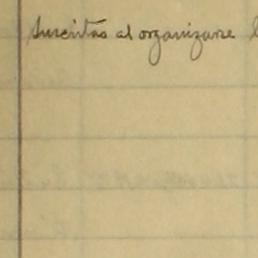 suscritas al organizarse